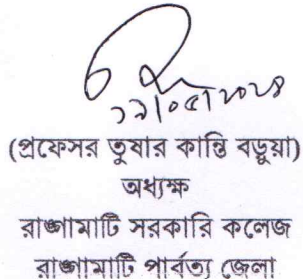 ২৯/০৫/২০২৪
(প্রফেসর তুষার কান্তি বড়ুয়া)
অধ্যক্ষ
রাঙ্গামাটি সরকারি কলেজ
রাঙ্গামাটি পার্বত্য জেলা